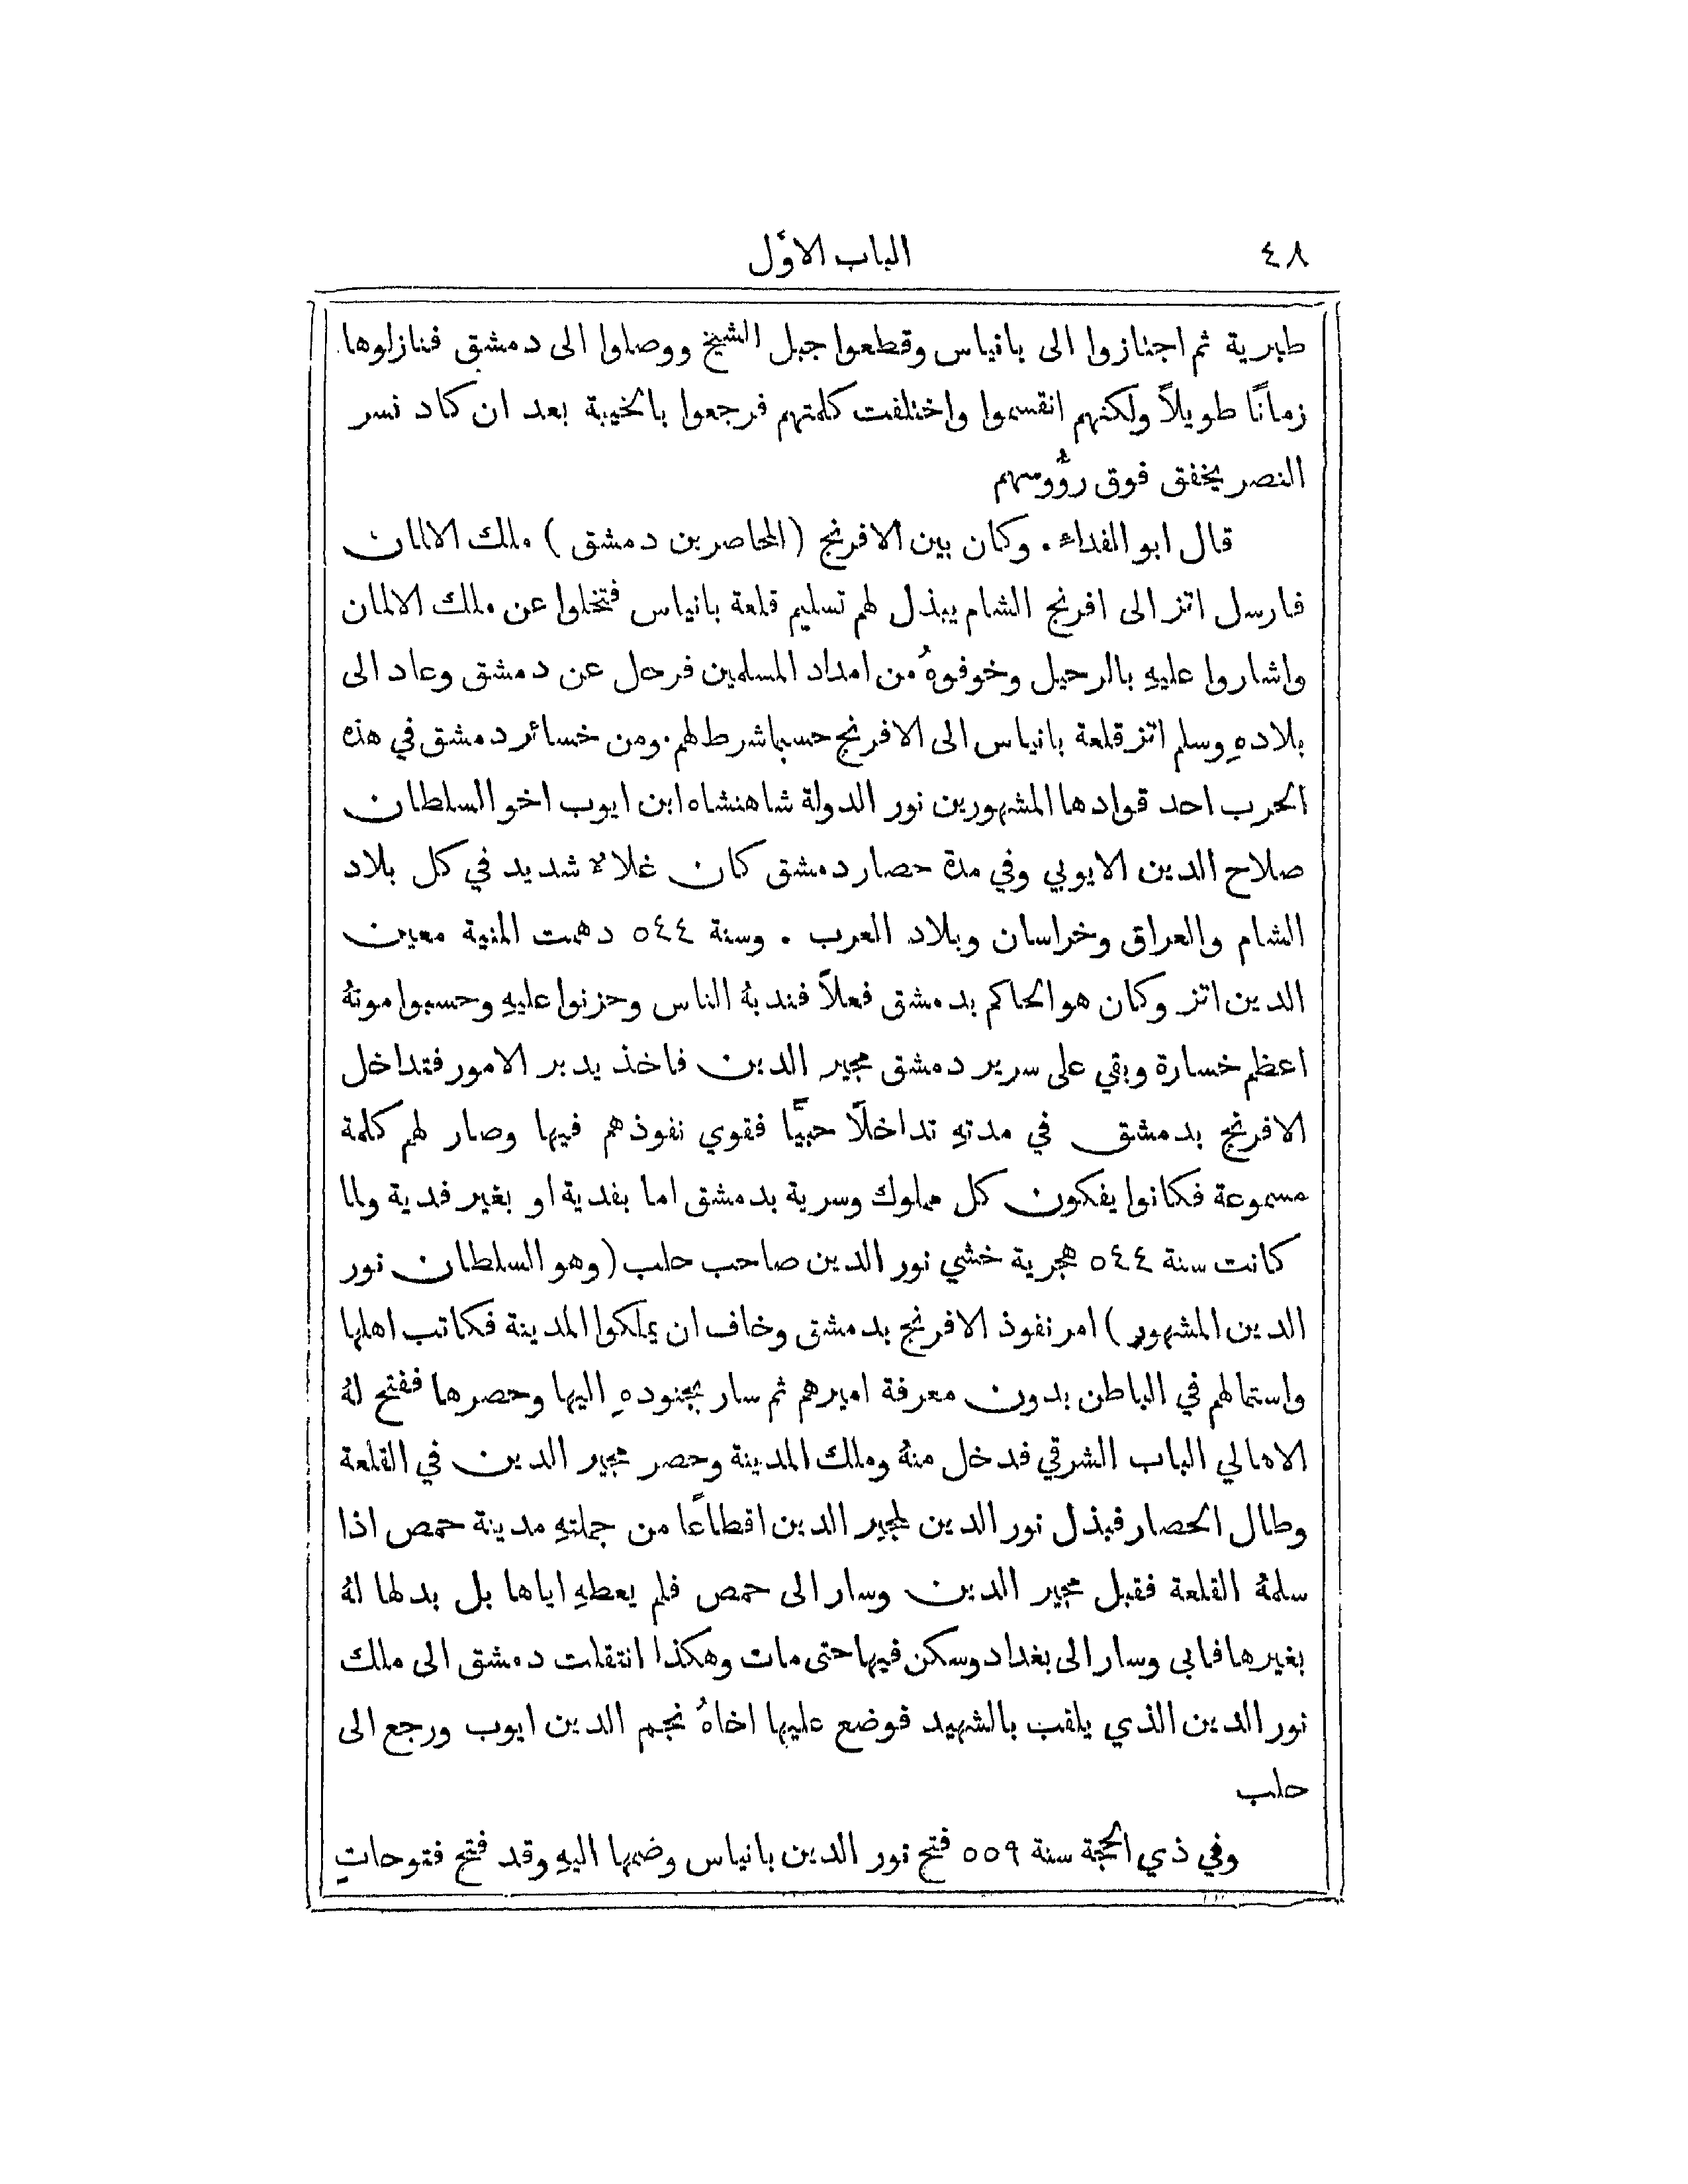 ٤٨ الباب الاوَّل
طبرية ثم اجتازوا الى بانياس وقطعوا جبل الشيخ ووصلوا الى دمشق فنازلوها
زمانًا طويلاً ولكنهم انقسموا واختلفت كلمتهم فرجعوا بالخيبة بعد ان كاد نسر
النصر يخفق فوق رؤُوسهم
قال ابو الفداء . وكان بين الافرنج (المحاصرين دمشق) ملك الالمان
فارسل اتز الى افرنج الشام يبذل لهم تسليم قلعة بانياس فتخلوا عن ملك الالمان
واشاروا عليهِ بالرحيل وخوفوهُ من امداد المسلمين فرحل عن دمشق وعاد الى
بلادهِ وسلم اتز قلعة بانياس الى الافرنج حسبما شرط لهم. ومن خسائر دمشق في هذه
الحرب احد قوادها المشهورين نور الدولة شاهنشاه ابن ايوب اخو السلطان
صلاح الدين الايوبي وفي مدة حصار دمشق كان غلاء شديد في كل بلاد
الشام والعراق وخراسان وبلاد العرب . وسنة ٥٤٤ دهمت المنية معين
الدين اتز وكان هو الحاكم بدمشق فعلاً فندبهُ الناس وحزنوا عليهِ وحسبوا موتهُ
اعظم خسارة وبقي على سرير دمشق مجير الدين فاخذ يدبر الامور فتداخل
الافرنج بدمشق في مدتهِ تداخلاً حبيًّا فقوي نفوذهم فيها وصار لهم كلمة
مسموعة فكانوا يفكون كل مملوك وسرية بدمشق اما بفدية او بغير فدية ولما
كانت سنة ٥٤٤ هجرية خشي نور الدين صاحب حلب (وهو السلطان نور
الدين المشهور) امر نفوذ الافرنج بدمشق وخاف ان يملكوا المدينة فكاتب اهلها
واستمالهم في الباطن بدون معرفة اميرهم ثم سار بجنودهِ اليها وحصرها ففتح لهُ
الاهالي الباب الشرقي فدخل منهُ وملك المدينة وحصر مجير الدين في القلعة
وطال الحصار فبذل نور الدين لمجير الدين اقطاعًا من جملتهِ مدينة حمص اذا
سلمهُ القلعة فقبل مجير الدين وسار الى حمص فلم يعطهِ اياها بل بدلها لهُ
بغيرها فابى وسار الى بغداد وسكن فيها حتى مات وهكذا انتقلت دمشق الى ملك
نور الدين الذي يلقب بالشهيد فوضع عليها اخاهُ نجم الدين ايوب ورجع الى
حلب
وفي ذي الحجة سنة ٥٥٩ فتح نور الدين بانياس وضمها اليهِ وقد فتح فتوحاتٍ